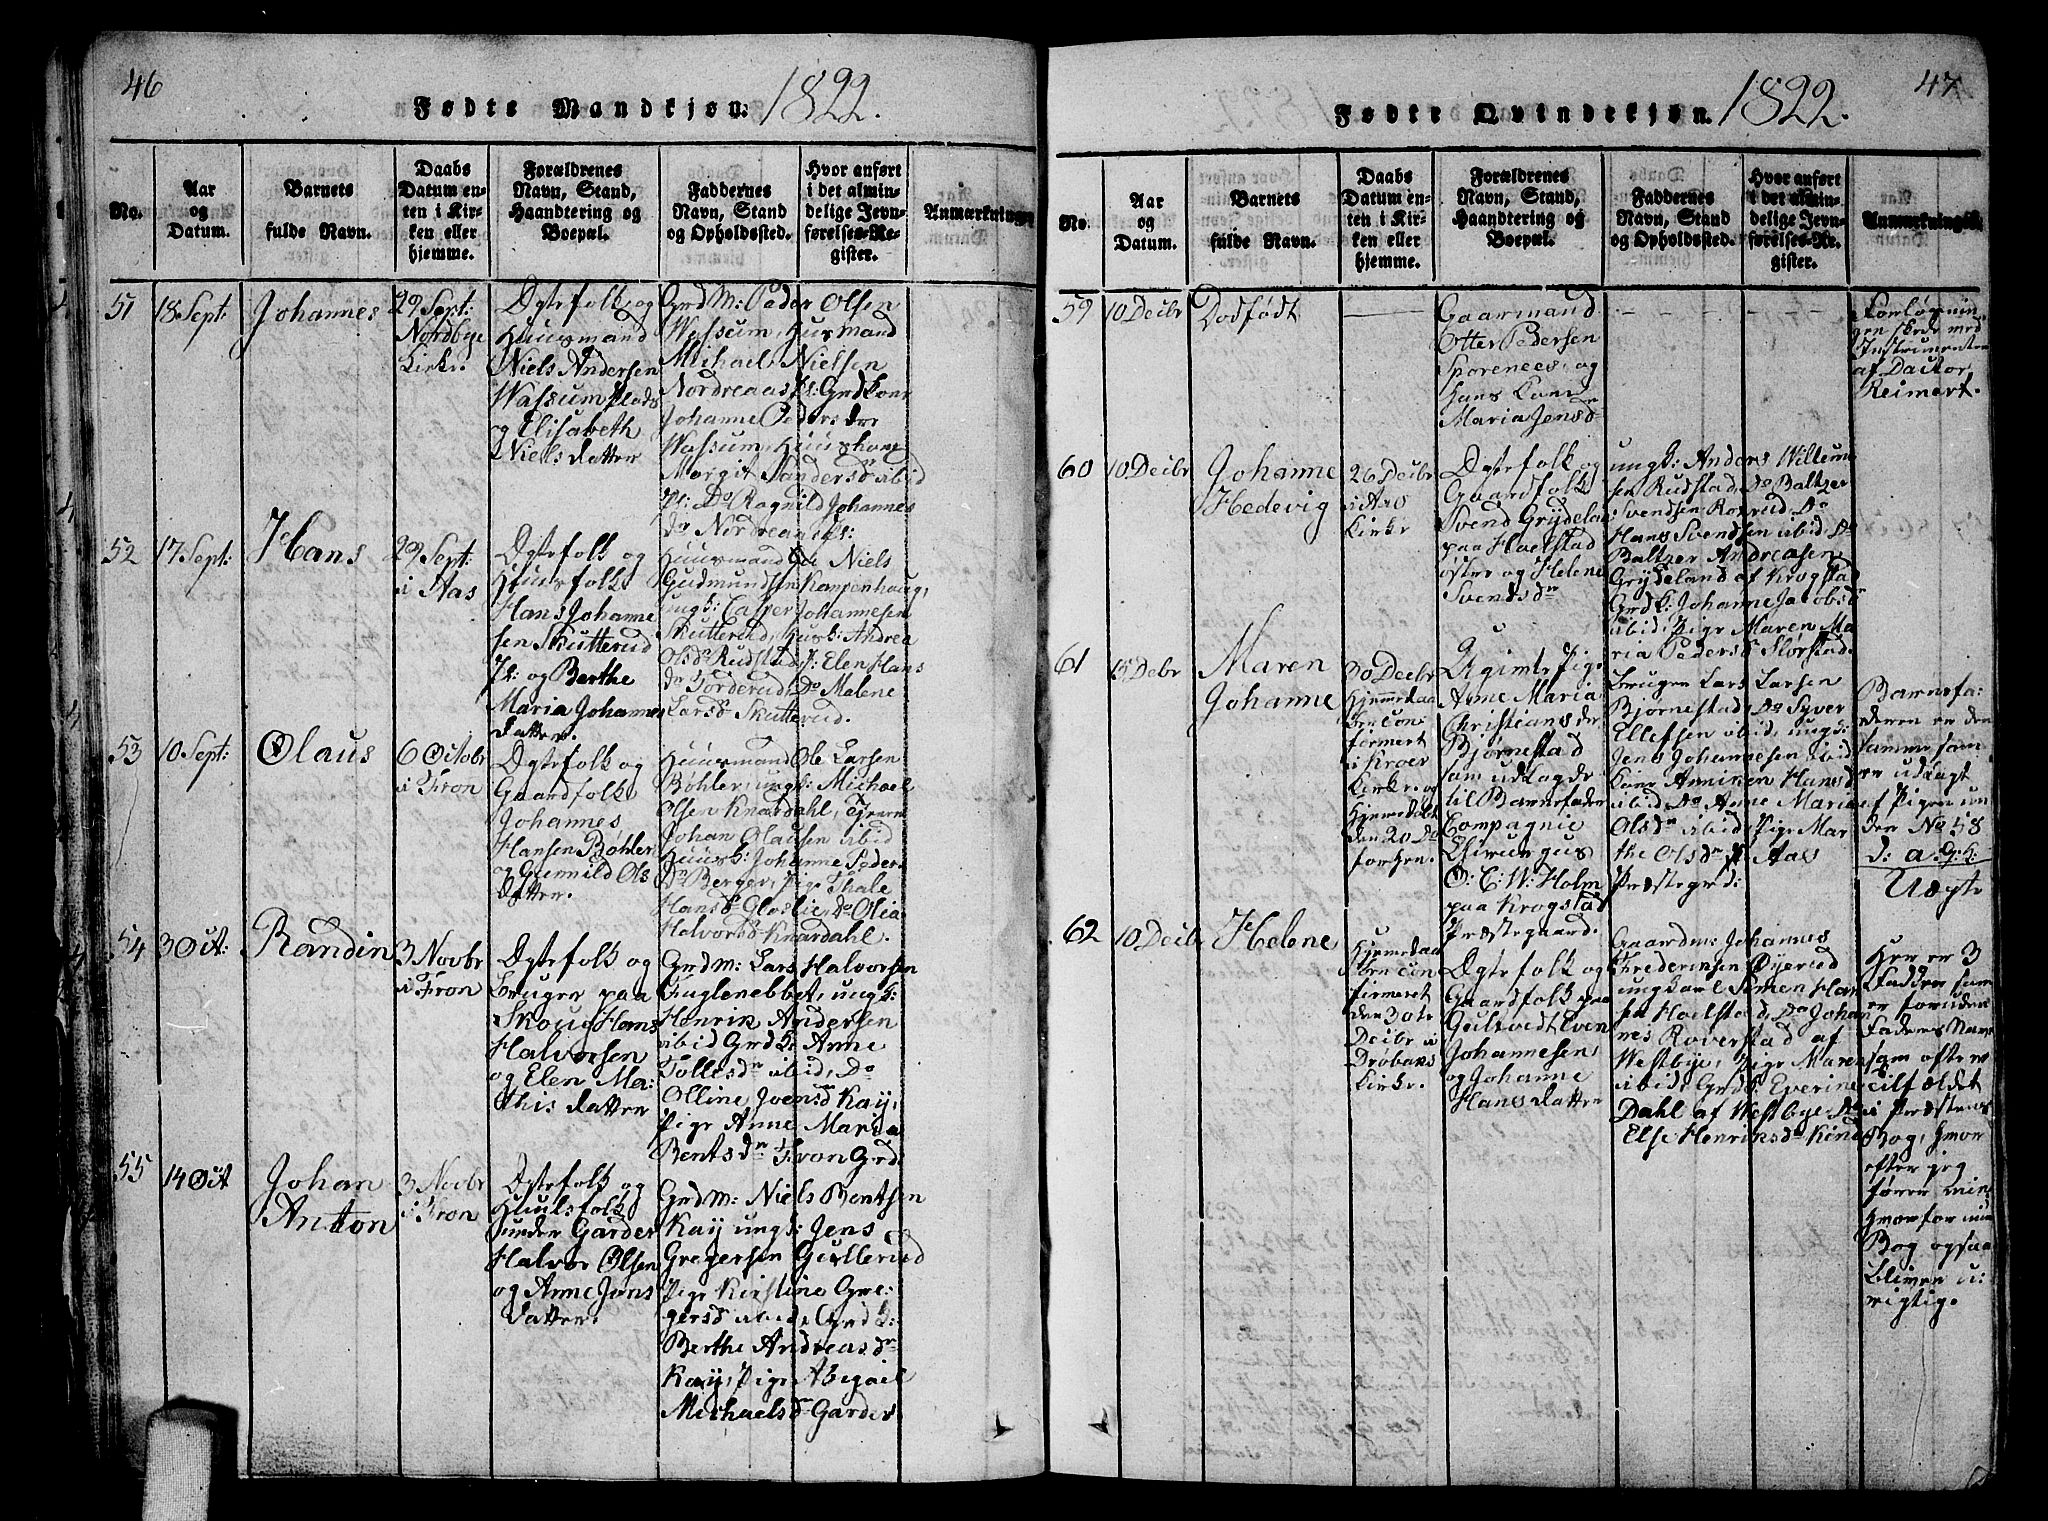 46
Fødte Mandkjøn. 1822.
No.
Aar og Datum.
Barnets fulde Navn.
Daabs Datum enten i Kirken eller hjemme.
Forældrenes Navn, Stand, Haandtering og Boepæl.
Faddernes Navn, Stand og Opholdssted.
Hvor anført i det almindelige Jevnførelses-Register.
Anmærkninger
51
18 Sept:
Johannes
29 Sept:
Nordbye
Kirke.
Ægtefolk og
Huusmand
Niels Andersen
Wassum Plads
og Elisabeth
Niels datter
Grdm: Peder Olsen
Wassum, Huusmand
Michael Nielsen
Nordreaas Pl: Grdkone
Johanne Peders der
Wassum, Huuskone
Margit Sandersd ibid
Pl: Do Ragnild Johannes
dr Nordreaas
52
17 Sept:
Hans
29 Sept:
i Aas
Ægtefolk og
Huusfolk
Hans Johanne
sen Skutterud
Pl: og Berthe
Maria Johannes
datter.
Huusmand Niels
Gudmundsen Kongenhaug,
ungk: Casper Johannesen
Skutterud, Husk: Andrea
Olsdr Rudstad P: Elen Hans
dr Torderud, Do Malene
Larsdr Skutterud.
53
10 Sept:
Olaus
6 Octobr
i Fron
Ægtefolk og
Gaardfolk
Johannes
Hansen Bøhler
og Gunnild Ols
datter.
Huusmand Ole Larsen
Bøhler, ungk: Michael
Olsen Knardahl, Tjenern
Johan Olausen ibid
Huusk: Johanne Peders
Dr Berger, Pige Thale
Hansdr Gloslie, Do Olia
Halvorsdr Knardahl.
54
3 Oct:
Randin
3 Novbr
i Fron
Ægtefolk og
Bruger paa
Skoug Hans
Halvorsen
og Elen Ma:
this datter
Grdm: Lars Halvorsen
Fuglenebbet, ungk:
Henrik Andersen
ibid Grdk: Anne
Tollesdr ibid, Do
Olline Jvensd Kay,
Pige Anne Maria
Bentsdr Fron Grd:
55
14 Oct
Johan
Anton
3 Novbr
i Fron
Ægtefolk og
Huusfolk
under Garder
Halvor Olsen
og Anne Jens
datter.
Grdm: Niels Bentsen
Kay ungk: Jens
Gregersen Gullerud
Pige Kirstine Gre:
gersd ibid, Grdk:
Berthe Andreasdr
Kay, Pige Abigael
Michaelsdr Garder
47
Fødte Qvindekjøn. 1822.
No.
Aar og Datum.
Barnets fulde Navn.
Daabs Datum enten i Kirken eller hjemme.
Forældrenes Navn, Stand, Haandtering og Boepæl.
Faddernes Navn, Stand og Opholdssted.
Hvor anført i det almindelige Jevnførelses-Re-gister.
Anmærkninger
59
10 Decbr
Dødfødt
Gaarmand
Otter Pedersen
Sporenees, og
Hans Kone
Maria Jensdr
Forløsnin
gen skede med
Instrumenter
af Doctor
Reimert.
60
10 Decbr
Johanne
Hedevig
26 Decbr
i Aas
Kirke
Ægtefolk og
Gaardfolk
Svend Grydela
paa Hoelstad
østre og Helene
Svendsdr
ungk: Anders Willum
sen Rudstad, Do Baltzer
Svendsen Roverud Do
Hans Svendsen ibid Do
Baltzer Andreasen,
Grydeland af Krogstad
Grdk: Johanne Jacobsd
ibid, Pige Maren Ma
ria Pedersd Slørstad.
61
15 Debr
Maren
Johanne
30 Decbr
Hjemmedaa
ben Con:
firmert
i Kroer
Kirke, og
Hjemedøbt
den 20 Do
forhen.
Ugimte Pige
Anne Maria
Christians der
Bjørnestad
som udlagde
til Barnefader
Compagnie
Chirurgus
O: C: W: Holm
paa Krogstad
Præstegaard.
Bruger Lars Larsen
Bjørnestad, Do Syver
Ellefsen ibid, ungk:
Jens Johannesen ibid
Kone Anniken Hansd
ibid Do Anne Maria
Olsdr ibid Pige Mar
the Olsdr P: Aas
Præstegrd:
Barnefa:
deren er den
samme som
er udlagt
af Pigen un
der No 58
d: a. G: H.
Uægte
62
10 Decbr
Helene
Hjemedaa
ben con
firmeret
den 30te
Decbr i
Drøbaks
Kirke.
Ægtefolk og
Gaardfolk paa
Gultvedt Even
Johannesen,
og Johanne
Hans datter
Gaardm: Johannes
Frederiksen Øyerud
ungkarl Simen Han
sen Hoelstad, Do Johan
nes Roverstad af
Westbye, Pige Maren
ibid, Grdk Everine
Dahl af Westbye Do
Else Henriksdr Kine
Her er 3
Fadder som
er foruden
Faders Navn,
som ofte er
tilfældet
i Præstens
Bog, hvor
efter jeg
fører min
hvorfor min
Bog ogsaa
bliver u:
rigtig.